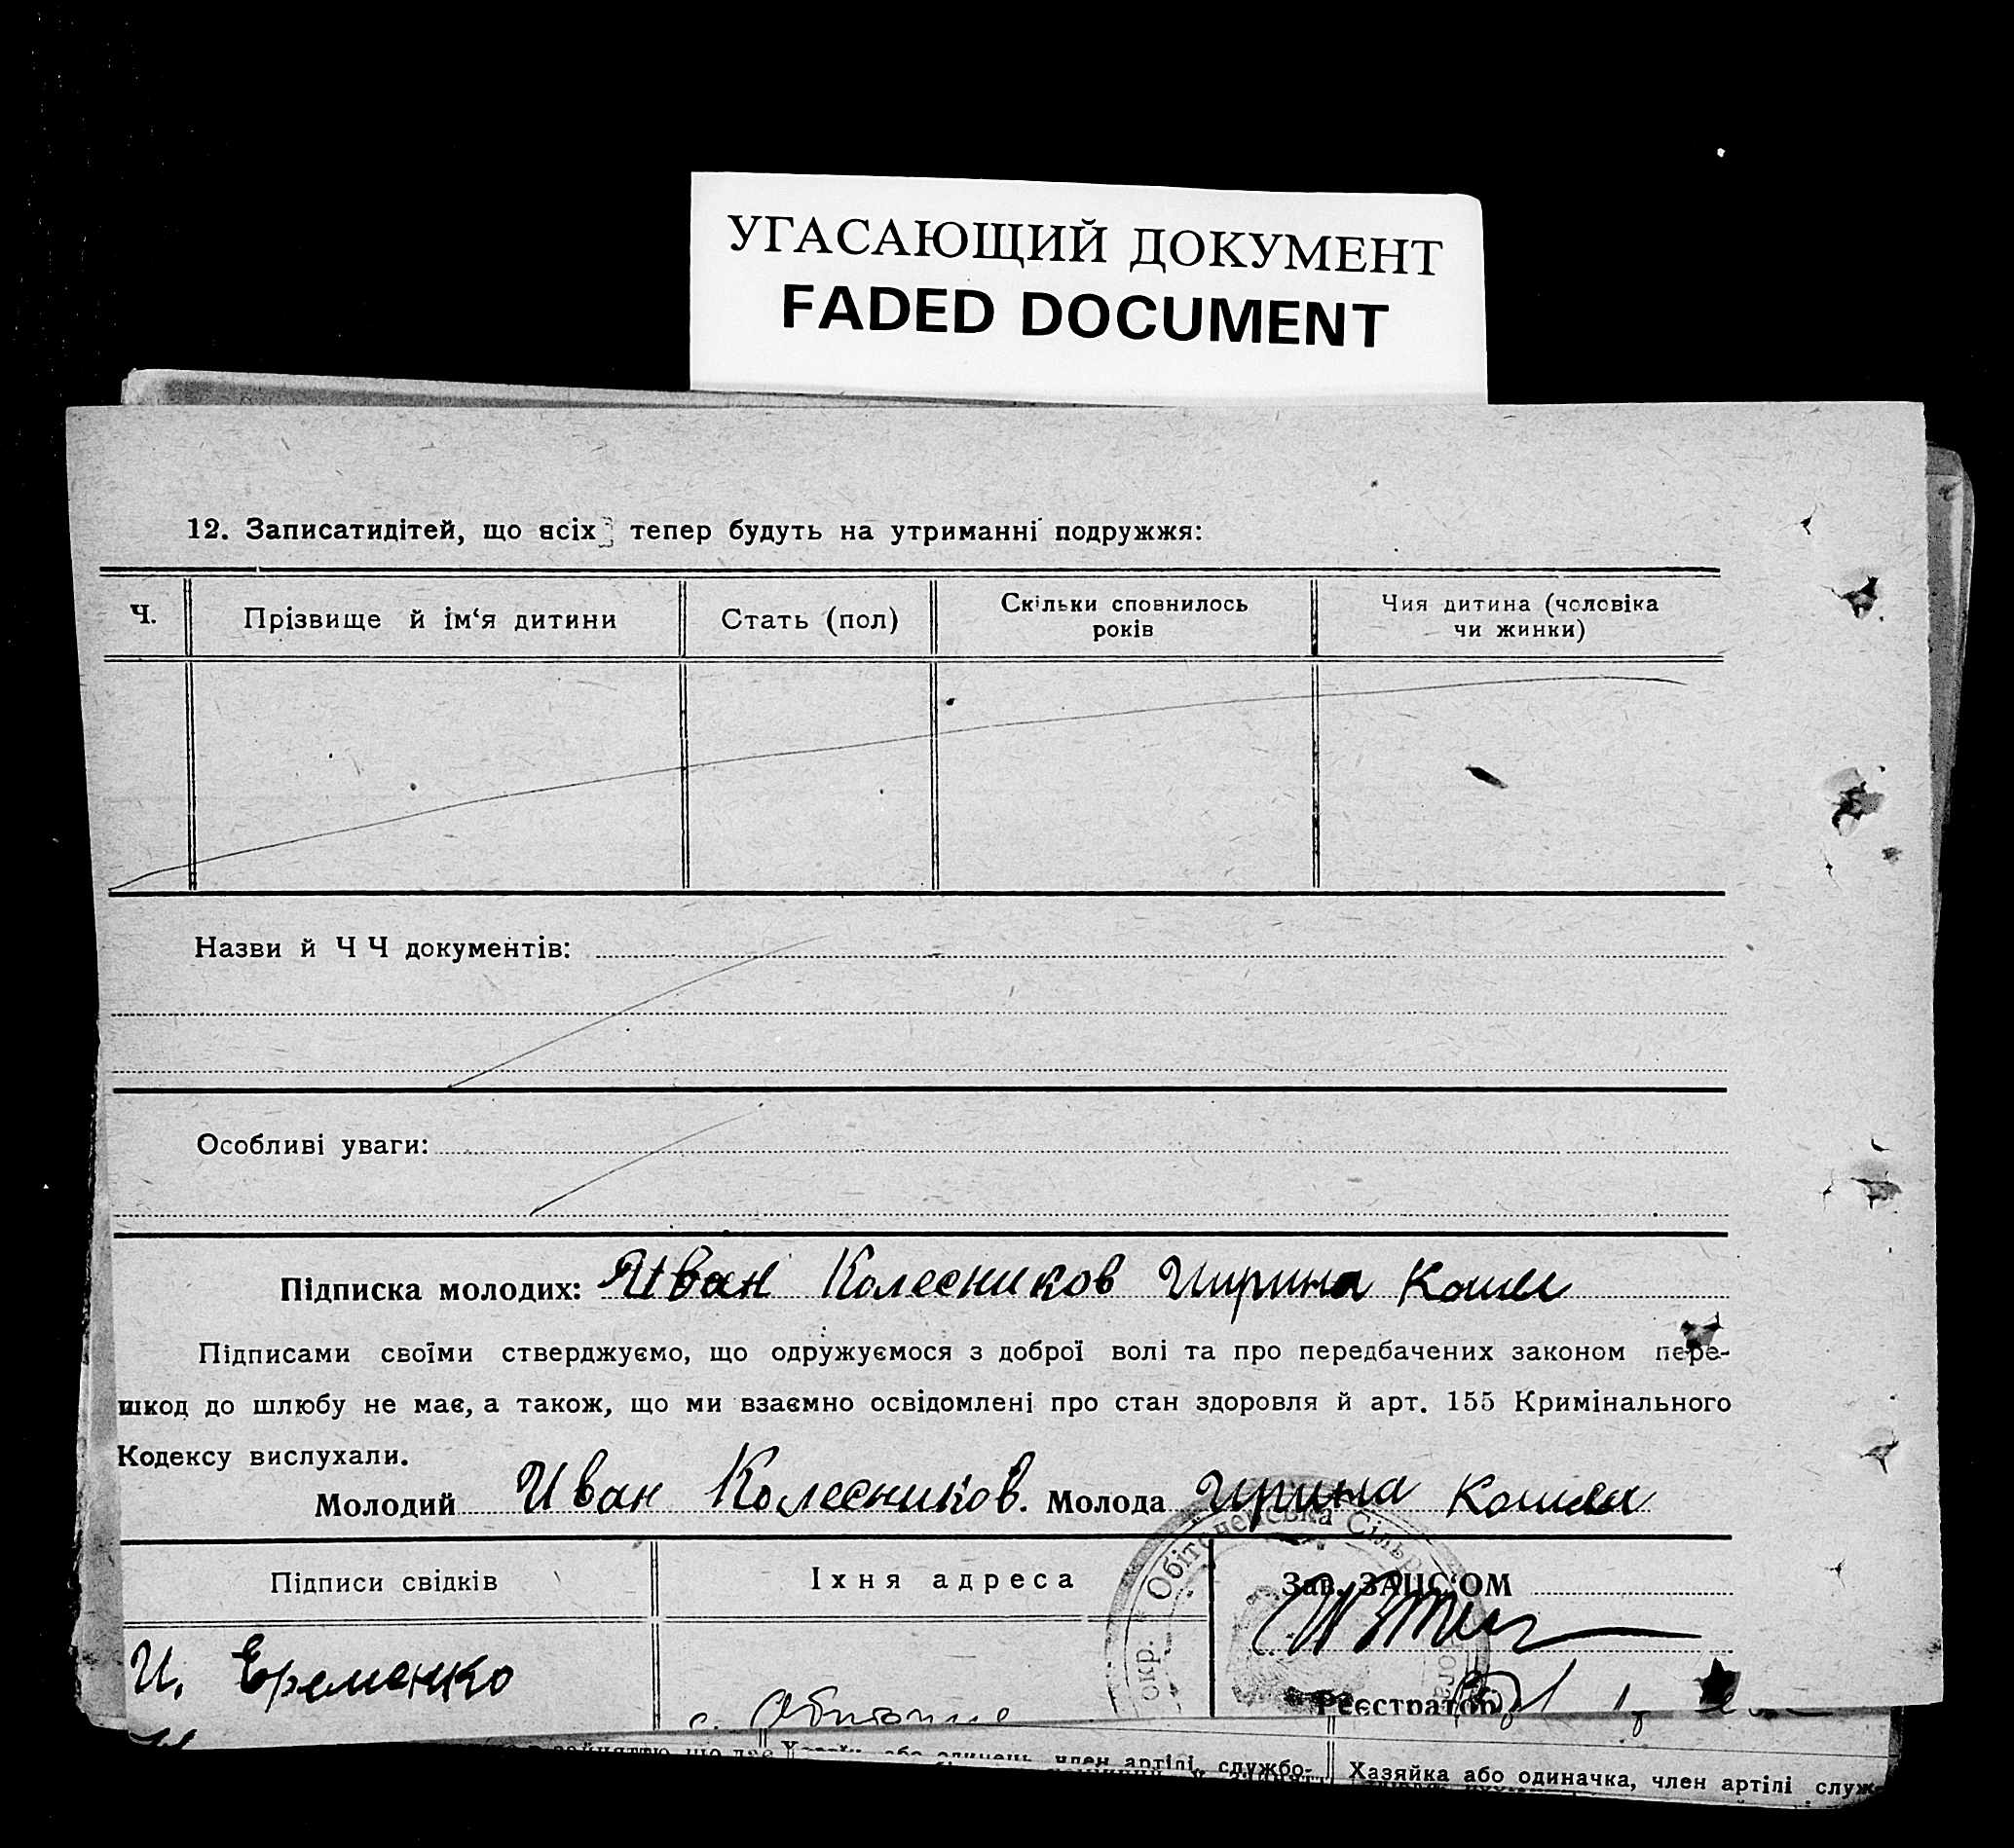 УГАСАЮЩИЙ ДОКУМЕНТ
FADED DOCUMENT
12. Записатидітей, що всіх тепер будуть на утриманні подружжя:
Ч. Прізвище й ім‘я дитини Стать (пол) Скільки сповнилось років Чия дитина (чоловіка чи жинки)
Назви й Ч Ч документів:
Особливі уваги:
Підписка молодих: Иван Колесников Ирина
Підписами своїми стверджуємо, що одружуємося з доброї волі та про передбачених законом пере-
шкод до шлюбу не має, а також, що ми взаємно освідомлені про стан здоровля й арт. 155 Кримінального
Кодексу вислухали.
Молодий Иван Колесников. Молода Ирина
Підписи свідків Їхня адреса Зав. ЗАЦС‘ОМ
И. Еременко
с. Реєстратор
окр. Сільр
член артілі, службо- Хазяйка або одиначка, член артілі служ